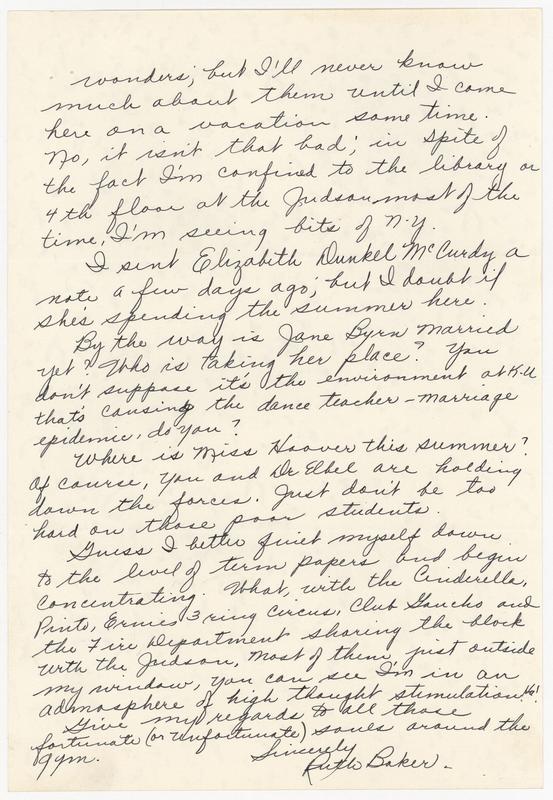 wonders; but I'll never know
much about them until I come
here on a vacation some time.
No, it isn't that bad; in spite of
the fact I'm confined to the library or
4th floor at the Judson most of the
time, I'm seeing bits of N.Y.
I sent Elizabeth Dunkel McCurdy a
note a few days ago; but I doubt if
she's spending the summer here.
By the way is Jane Byrn married
yet? Who is taking her place? You
don't suppose it's the environment at K.U
that's causing the dance teacher - marriage
epidemic, do you?
Where is Miss Hoover this summer?
Of course, you and Dr Elbel are holding
down the forces. Just don't be too
hard on those poor students.
Guess I better quiet myself down
to the level of term papers and begin
concentrating. What, with the Cinderella,
Pinto, Ernies 3 ring circus, Club Gaucho and
the Fire Department sharing the block
with the Judson, most of them just outside
my window, you can see I'm in an
admosphere of high thought stimulation!
Give my regards to all those
fortunate (or unfortunate) souls around the
gym.
Sincerely
Ruth Baker -